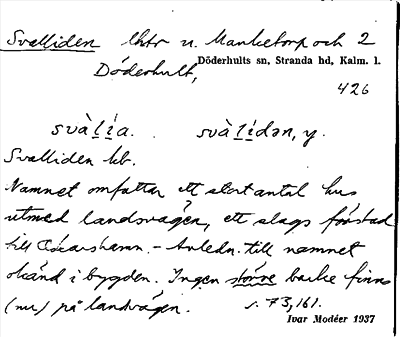 Svalliden lhtr u. Manketorp och 2
Döderhult, Döderhults sn, Stranda hd, Kalm. l.
426
svàl̲í̲a. svàl̲í̲dən, y.
Svalliden hb.
Namnet omfattar ett stort antal hus
utmed landsvägen, ett slags förstad
till Oskarshamn. – Anledn. till namnet
okänd i bygden. Ingen större backe finns
(nu) på landsvägen. s. 73, 161.
Ivar Modéer 1937